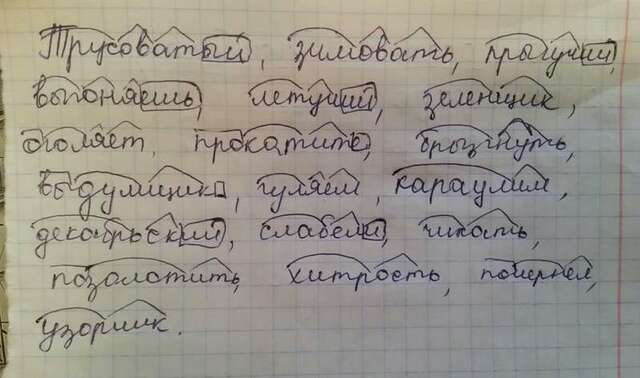 Трусоватый, зимовать, прыгучий,
выгоняешь, летучий, зеленщик,
оголяет, прокатите, брызгнуть,
выдумщик, гуляем, караулим,
декабрьский, слабели, чихать,
позолотить, хитрость, почернел,
узорщик.